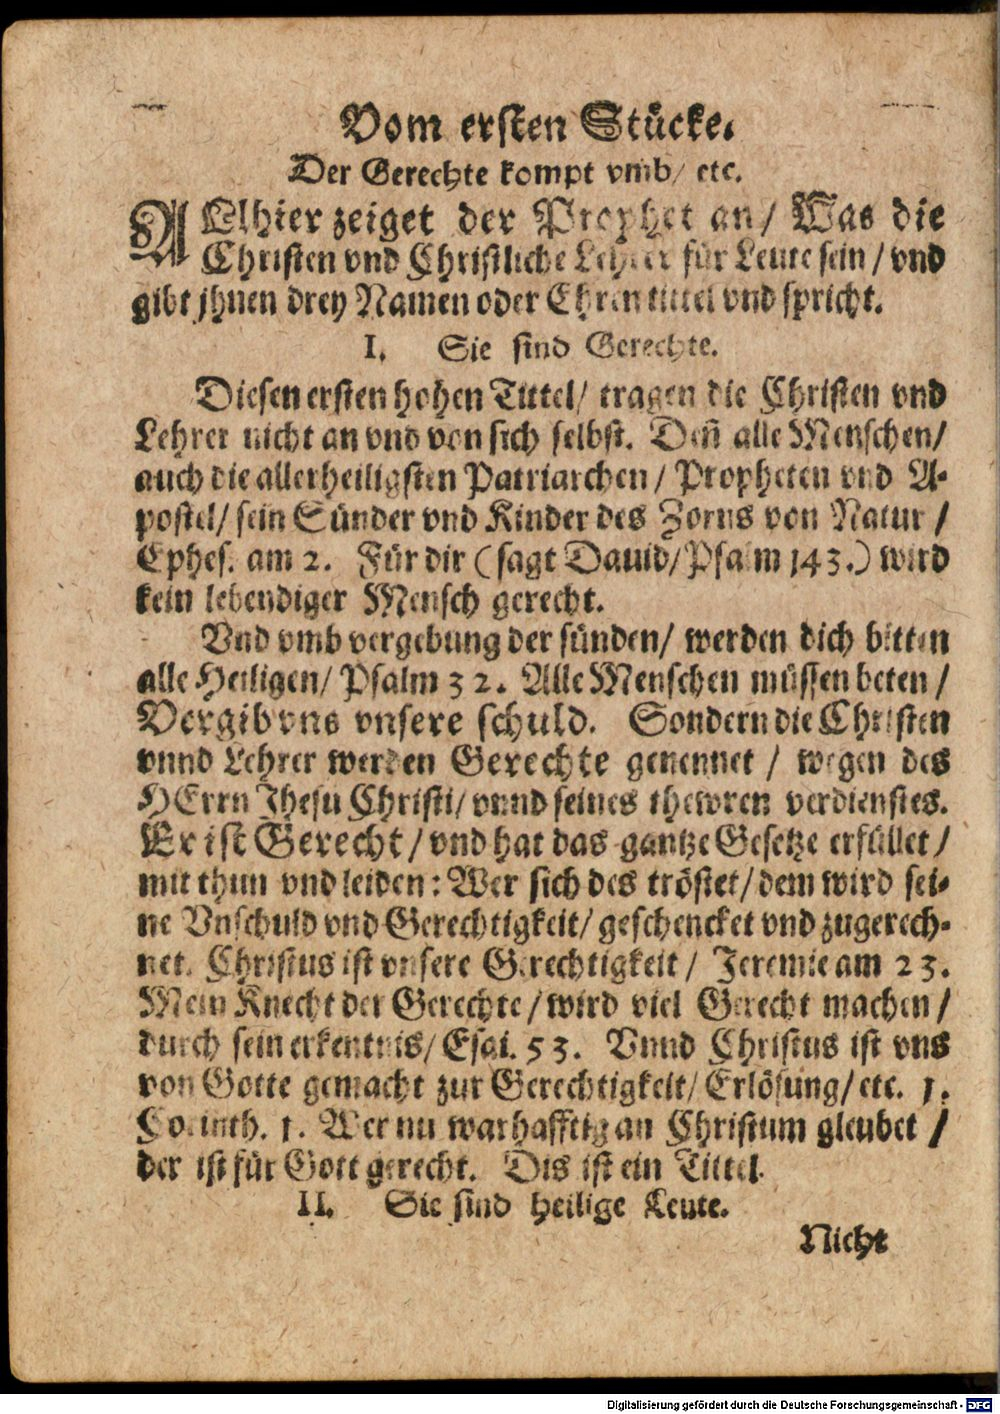 Vom ersten Stücke.
Der Gerechte kompt vmb/ etc.
ALlhier zeiget der Prophet an/ Was die
Christen vnd Christliche Lehrer für Leute sein/ vnd
gibt jhnen drey Namen oder Ehrentittel vnd spricht.
I. Sie sind Gerechte.
Diesen ersten hohen Tittel/ tragen die Christen vnd
Lehrer nicht an vnd von sich selbst. Deñ alle Menschen/
auch die allerheiligsten Patriarchen/ Propheten vnd A-
postel/ sein Sünder vnd Kinder des Zorns von Natur/
Ephes. am 2. Für dir (sagt Dauid/ Psalm 143.) wird
kein lebendiger Mensch gerecht.
Vnd vmb vergebung der sünden/ werden dich bitten
alle Heiligen/ Psalm 32. Alle Menschen müssen beten/
Vergib vns vnsere schuld. Sondern die Christen
vnnd Lehrer werden Gerechte genennet/ wegen des
HErrn Jhesu Christi/ vnnd seines thewren verdienstes.
Er ist Gerecht/ vnd hat das gantze Gesetze erfüllet/
mit thun vnd leiden: Wer sich des tröstet/ dem wird sei-
ne Vnschuld vnd Gerechtigkeit/ geschencket vnd zugerech-
net. Christus ist vnsere Gerechtigkeit/ Jeremie am 23.
Mein Knecht der Gerechte/ wird viel Gerecht machen/
durch sein erkentnis/ Esai. 53. Vnnd Christus ist vns
von Gotte gemacht zur Gerechtigkeit/ Erlösung/ etc. 1.
Corinth. 1. Wer nu warhafftig an Christum gleubet/
der ist für Gott gerecht. Dis ist ein Tittel.
II. Sie sind heilige Leute.
Nicht
Digitalisierung gefördert durch die Deutsche Forschungsgemeinschaft - DFG